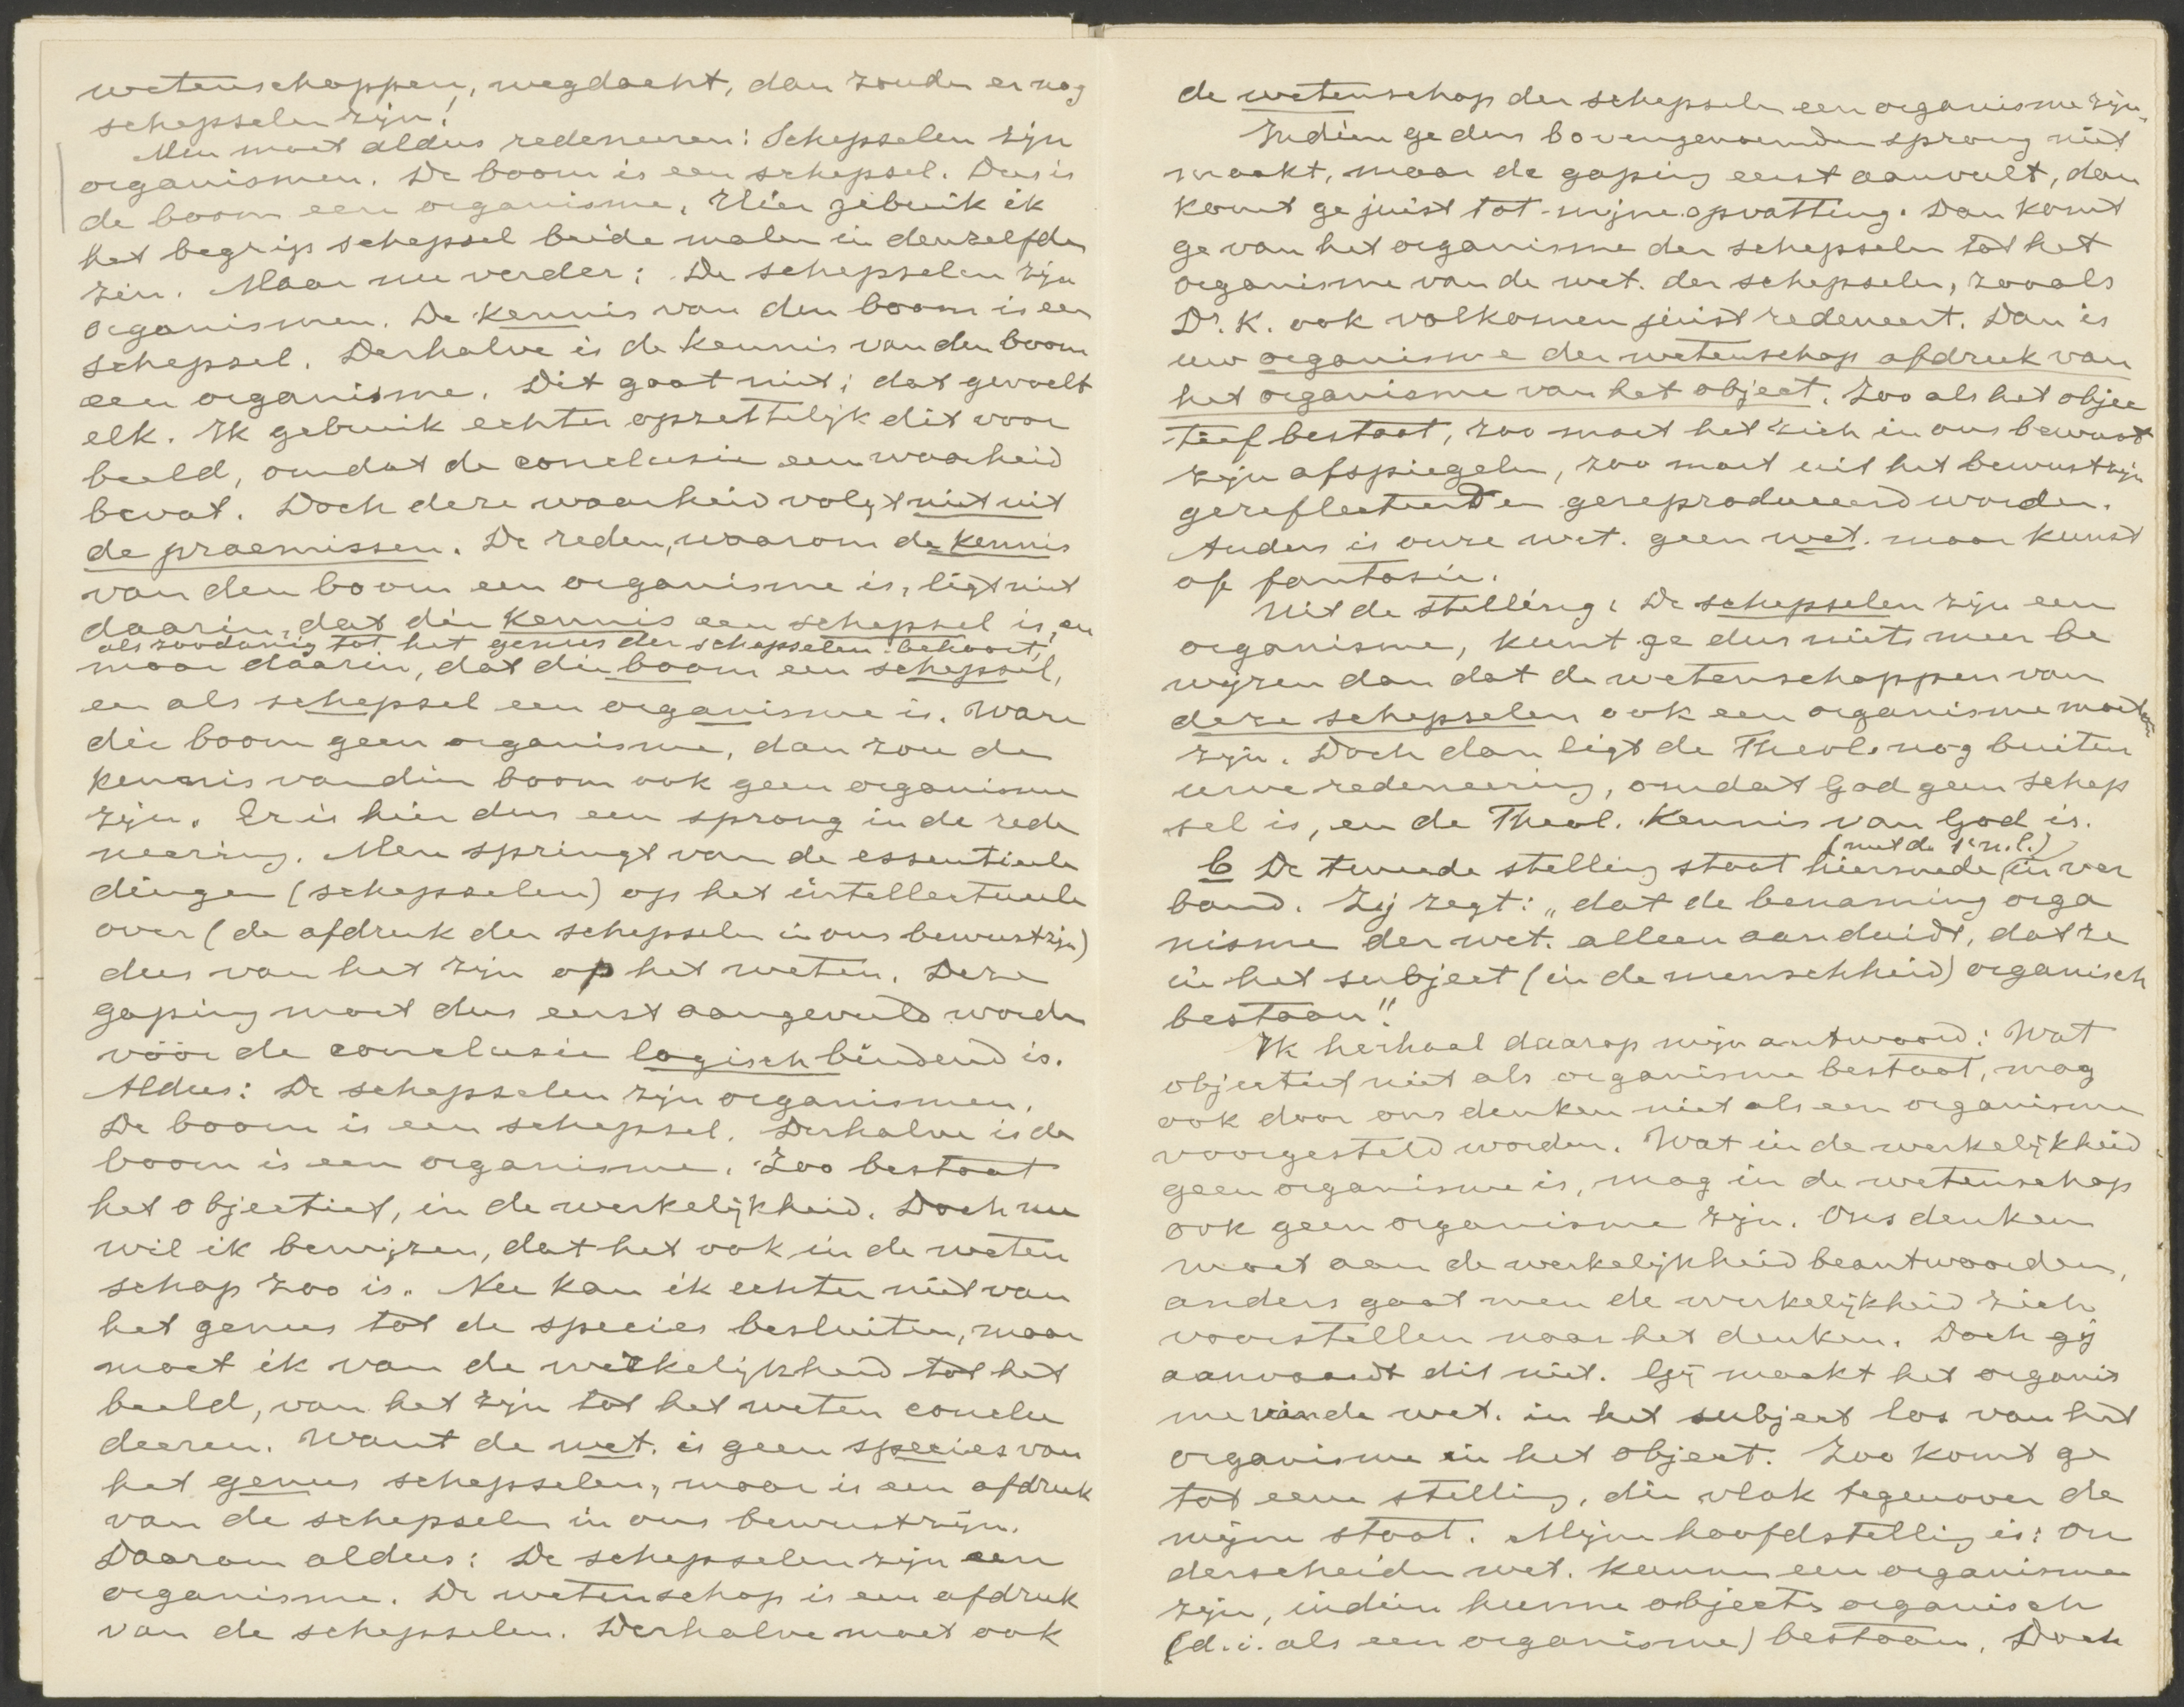 wetenschappen, wegdacht, dan zouden er nog
schepselen zijn!
Men moet aldus redeneeren: Schepselen zijn
organismen. De boom is een schepsel. Dus is
de boom een organisme. Hier gebruik ik
het begrip schepsel beide malen in denzelfden
zin. Maar nu verder: De schepselen zijn
organismen. De kennis van den boom is een
schepsel. Derhalve is de kennis van den boom
een organisme. Dit gaat niet; dat gevoelt
elk. Ik gebruik echter opzettelijk dit voor
beeld, omdat de conclusie een waarheid
bevat. Doch deze waarheid volgt niet uit
de praemissen. De reden, waarom de kennis
van den boom een organisme is, ligt niet
daarin, dat die kennis een schepsel is, en
als zoodanig tot het genus der schepselen behoort,
maar daarin, dat die boom een schepsel,
en als schepsel een organisme is. Ware
die boom geen organisme, dan zou de
kennis van dien boom ook geen organisme
zijn. Er is hier dus een sprong in de rede
neering. Men springt van de essentieele
dingen (schepselen) op het intellectueele
over (de afdruk der schepselen in ons bewustzijn)
dus van het zijn op het weten. Deze
gaping moet dus eerst aangevuld worden
vóór de conclusie logisch bindend is.
Aldus: De schepselen zijn organismen.
De boom is een schepsel. Derhalve is de
boom is een organisme. Zoo bestaat
het objectief, in de werkelijkheid. Doch nu
wil ik bewijzen, dat het ook in de weten
schap zoo is. Nu kan ik echter niet van
het genus tot de species besluiten, maar
moet ik van de werkelijkheid tot het
beeld, van het zijn tot het weten conclu
deeren. Want de wet. is geen species van
het genus schepselen, maar is een afdruk
van de schepselen in ons bewustzijn.
Daarom aldus: De schepselen zijn een
organisme. De wetenschap is een afdruk
van de schepselen. Derhalve moet ook
de wetenschap der schepselen een organisme zijn.
Indien ge dus bovengenoemden sprong niet
maakt, maar de gaping eerst aanvult, dan
komt ge juist tot mijne opvatting. Dan komt
ge van het organisme der schepselen tot het
organisme van de wet. der schepselen, zooals
Dr. K. ook volkomen juist redeneert. Dan is
uw organisme der wetenschap afdruk van
het organisme van het object. Zoo als het objec
tief bestaat, zoo moet het zich in ons bewust
zijn afspiegelen, zoo moet uit het bewustzijn
gereflecteerd en gereproduceerd worden.
Anders is onze wet. geen wet. maar kunst
of fantasie.
Uit de stelling: De schepselen zijn een
organisme, kunt ge dus niets meer be
wijzen dan dat de wetenschappen van
deze schepselen ook een organisme moeten
zijn. Doch dan ligt de Theol. nog buiten
uwe redeneering, omdat God geen schep
sel is, en de Theol. kennis van God is.
(met de 1e n.l.)
b De tweede stelling staat hiermede in ver
band. Zij zegt: „dat de benaming orga
nisme der wet. alleen aanduidt, dat ze
in het subject (in de menschheid) organisch
bestaan".
Ik herhaal daarop mijn antwoord: Wat
objectief niet als organisme bestaat, mag
ook door ons denken niet als een organisme
voorgesteld worden. Wat in de werkelijkheid
geen organisme is, mag in de wetenschap
ook geen organisme zijn. Ons denken
moet aan de werkelijkheid beantwoorden,
anders gaat men de werkelijkheid zich
voorstellen naar het denken. Doch gij
aanvaardt dit niet. Gij maakt het organis
me van de wet. in het subject los van het
organisme in het object. Zoo komt ge
tot eene stelling, die vlak tegenover de
mijne staat. Mijn hoofdstelling is: On
derscheiden wet. kunnen een organisme
zijn, indien hunne objecten organisch
(d.i. als een organisme) bestaan. Doch